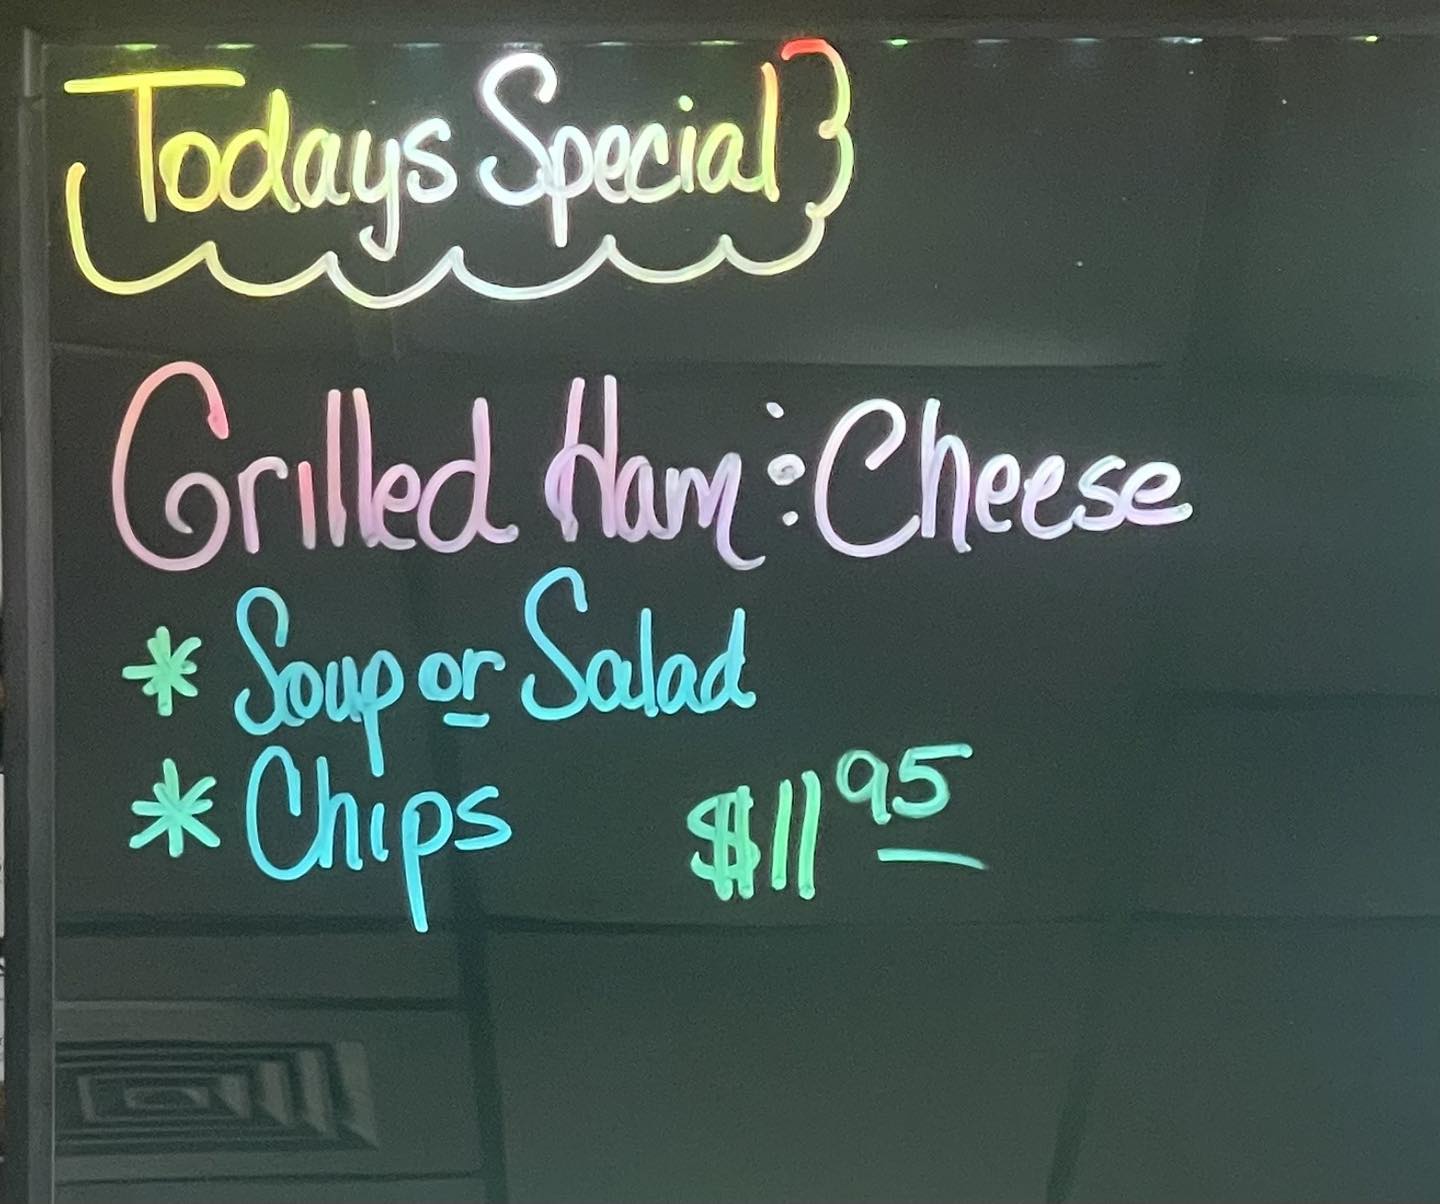 Todays Special
Grilled Ham : Cheese
* Soup or Salad
* Chips $11 95